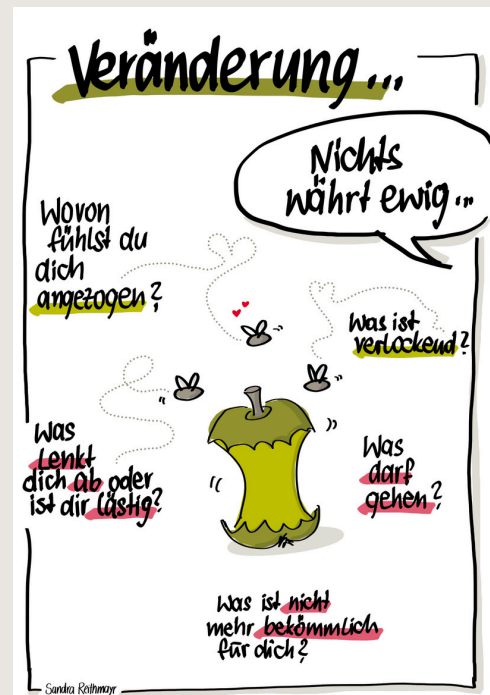 Veränderung...
Nichts
währt ewig...
Wovon
fühlst du
dich
angezogen?
Was ist
verlockend?
Was
Lenkt
dich ab oder
ist dir lästig?
Was
darf
gehen?
Was ist nicht
mehr bekömmlich
für dich?
Sandra Reithmayr